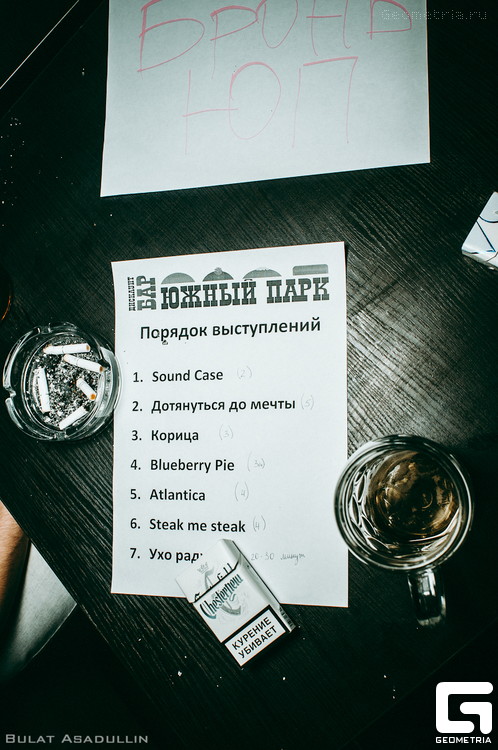 Geometria.ru
БРОНЬ
ЮП
ДИСКАУНТ БАР ЮЖНЫЙ ПАРК
Порядок выступлений
1. Sound Case (2)
2. Дотянуться до мечты (5)
3. Корица (3)
4. Blueberry Pie
5. Atlantica
6. Steak me steak (4)
7. Ухо рад 20-30 минут
Chesterfield
КУРЕНИЕ
УБИВАЕТ
BULAT ASADULLIN
GEOMETRIA